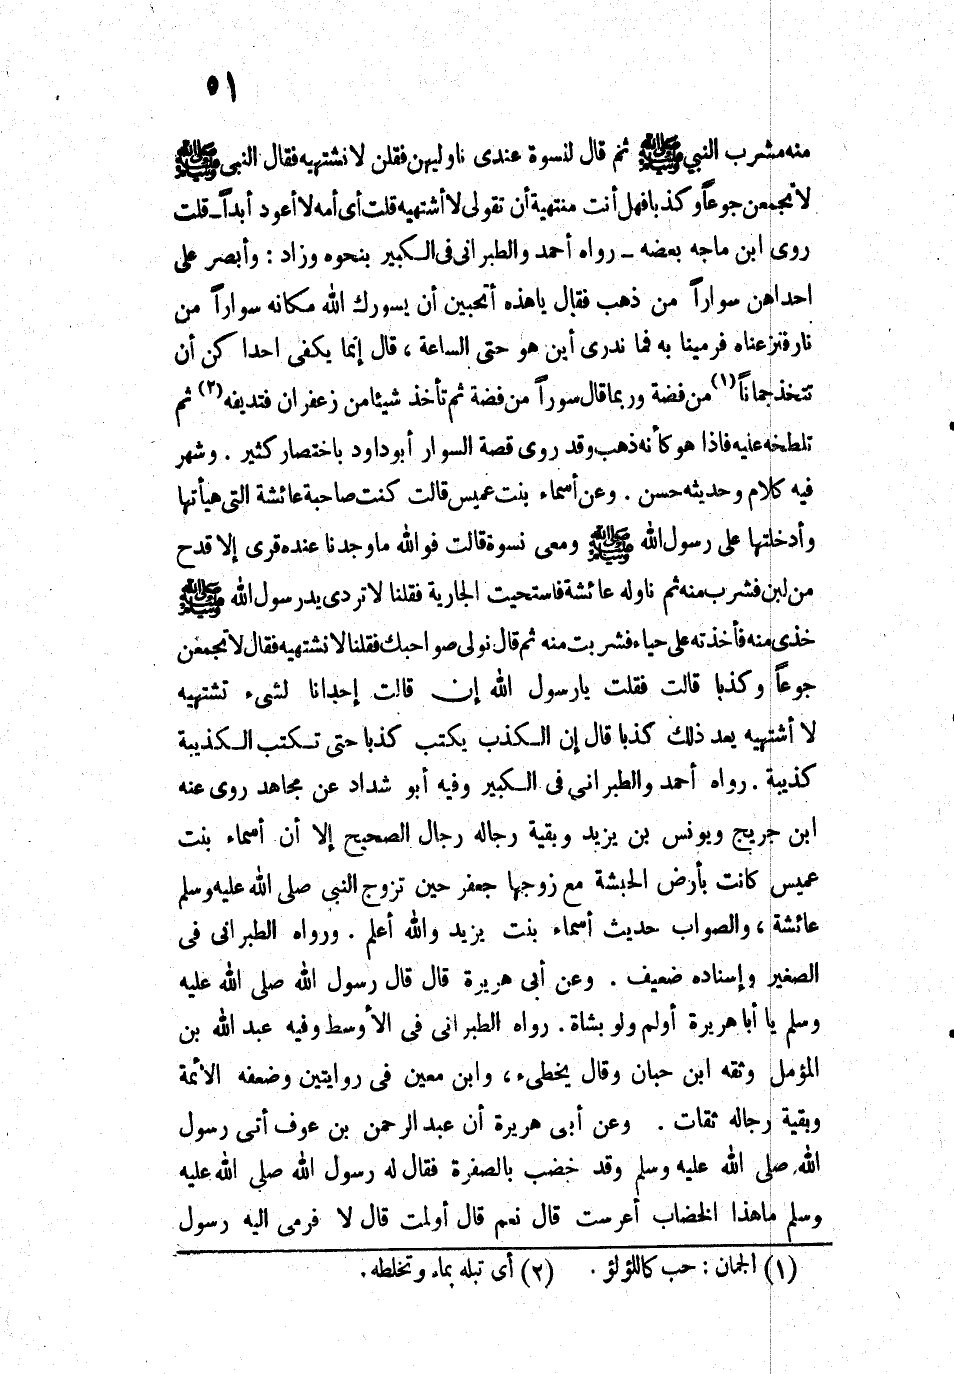 ٥١
منه مشرب النبي ﷺ ثم قال لنسوة عندى ناوليهن فقلن لا نشتهيه فقال النبى ﷺ
لا تجمعن جوعاً وكذبا فهل أنت منتهية أن تقولى لا أشتهيه قلت أى أمه لا أعود أبداً ـ قلت
روى ابن ماجه بعضه ـ رواه أحمد والطبرانى فى الكبير بنحوه وزاد : وأبصر على
احداهن سواراً من ذهب فقال ياهذه أتحبين أن يسورك الله مكانه سواراً من
نار فنزعناه فرمينا به فما ندرى أين هو حتى الساعة ، قال إنما يكفى احدا كن أن
تتخذ جماناً (١) من فضة وربما قال سوراً من فضة ثم تأخذ شيئا من زعفران فتديفه (٢) ثم
تلطخه عليه فاذا هو كأنه ذهب وقد روى قصة السوار أبو داود باختصار كثير . وشهر
فيه كلام وحديثه حسن . وعن أسماء بنت عميس قالت كنت صاحبة عائشة التى هيأتها
وأدخلتها على رسول الله ﷺ ومعى نسوة قالت فوالله ماوجدنا عنده قرى إلا قدح
من لبن فشرب منه ثم ناوله عائشة فاستحيت الجارية فقلنا لا تردى يد رسول الله ﷺ
خذى منه فأخذته على حياء فشربت منه ثم قال نولى صواحبك فقلنا لا نشتهيه فقال لا تجمعن
جوعاً وكذبا قالت فقلت يارسول الله إن قالت إحدانا لشىء تشتهيه
لا أشتهيه يعد ذلك كذبا قال إن الكذب يكتب كذبا حتى تكتب الكذيبة
كذيبة . رواه أحمد والطبراني فى الكبير وفيه أبو شداد عن مجاهد روى عنه
ابن جريج ويونس بن يزيد وبقية رجاله رجال الصحيح إلا أن أسماء بنت
عميس كانت بأرض الحبشة مع زوجها جعفر حين تزوج النبى صلى الله عليه وسلم
عائشة ، والصواب حديث أسماء بنت يزيد والله أعلم . ورواه الطبرانى فى
الصغير وإسناده ضعيف . وعن أبى هريرة قال قال رسول الله صلى الله عليه
وسلم يا أبا هريرة أولم ولو بشاة . رواه الطبرانى فى الأوسط وفيه عبد الله بن
المؤمل وثقه ابن حبان وقال يخطىء ، وابن معين فى روايتين وضعفه الأئمة
وبقية رجاله ثقات . وعن أبى هريرة أن عبد الرحمن بن عوف أتى رسول
الله صلى الله عليه وسلم وقد خضب بالصفرة فقال له رسول الله صلى الله عليه
وسلم ماهذا الخضاب أعرست قال نعم قال أولمت قال لا فرمى اليه رسول
(١) الجمان : حب كاللؤلؤ . (٢) أى تبله بماء وتخلطه .